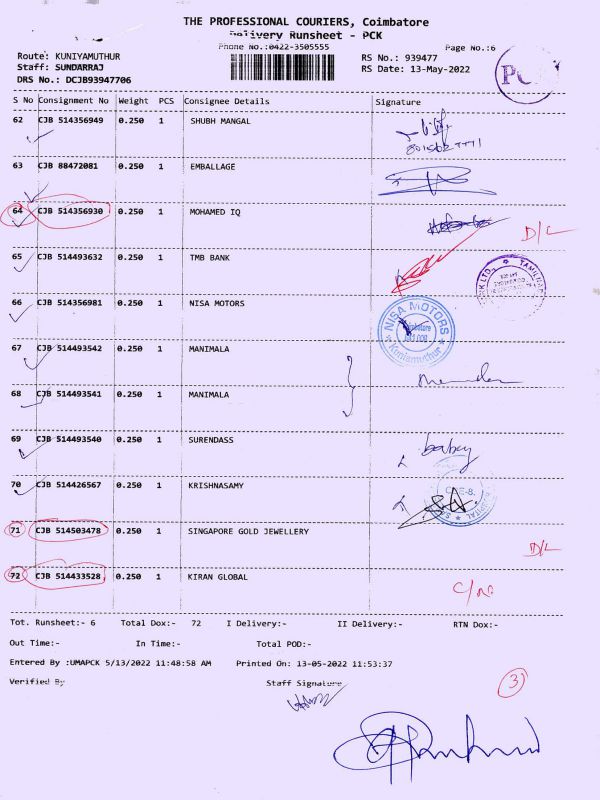 THE PROFESSIONAL COURIERS, Coimbatore
Delivery Runsheet - PCK
Phone No.:0422-3505555
Page No.:6
Route: KUNIYAMUTHUR
Staff: SUNDARRAJ
DRS No.: DCJB93947706
RS No.: 939477
RS Date: 13-May-2022
PC
S No Consignment No Weight PCS Consignee Details Signature
62 CJB 514356949 0.250 1 SHUBH MANGAL
63 CJB 88472081 0.250 1 EMBALLAGE
64 CJB 514356930 0.250 1 MOHAMED IQ
D/L
65 CJB 514493632 0.250 1 TMB BANK
66 CJB 514356981 0.250 1 NISA MOTORS
NISA MOTORS
Coimbatore
Kuniamuthur
67 CJB 514493542 0.250 1 MANIMALA
68 CJB 514493541 0.250 1 MANIMALA
69 CJB 514493540 0.250 1 SURENDASS
70 CJB 514426567 0.250 1 KRISHNASAMY
71 CJB 514503478 0.250 1 SINGAPORE GOLD JEWELLERY
D/L
72 CJB 514433528 0.250 1 KIRAN GLOBAL
Tot. Runsheet:- 6 Total Dox:- 72 I Delivery:- II Delivery:- RTN Dox:-
Out Time:- In Time:- Total POD:-
Entered By :UMAPCK 5/13/2022 11:48:58 AM Printed On: 13-05-2022 11:53:37
Verified By Staff Signature
3